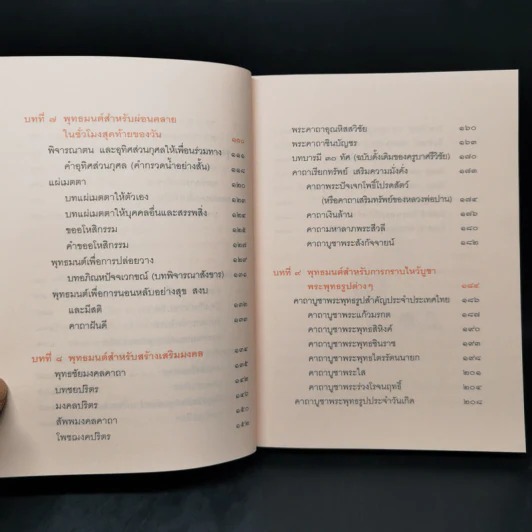 บทที่ ๗ พุทธมนต์สำหรับผ่อนคลาย
ในชั่วโมงสุดท้ายของวัน
พิจารณาตน และอุทิศส่วนกุศลให้เพื่อนร่วมทาง
คำอุทิศส่วนกุศล (คำกรวดน้ำอย่างสั้น)
แผ่เมตตา
บทแผ่เมตตาให้ตัวเอง ๑๒๔
บทแผ่เมตตาให้บุคคลอื่นและสรรพสิ่ง ๑๒๔
ขออโหสิกรรม ๑๒๕
คำขออโหสิกรรม ๑๒๕
พุทธมนต์เพื่อการปล่อยวาง
บทอภิณหปัจจเวกขณ์ (บทพิจารณาสังขาร) ๑๓๑
พุทธมนต์เพื่อการนอนหลับอย่างสุข สงบ
และมีสติ ๑๓๓
คาถาฝันดี ๑๓๓
บทที่ ๘ พุทธมนต์สำหรับสร้างเสริมมงคล ๑๓๔
พุทธชัยมงคลคาถา ๑๓๕
บทชยปริตร
มงคลปริตร ๑๔๖
สัพพมงคลคาถา ๑๕๐
โพชฌงคปริตร ๑๕๒
พระคาถาอุณหิสสวิชัย ๑๖๐
พระคาถาชินบัญชร ๑๖๓
บทบารมี ๓๐ ทัศ (ฉบับดั้งเดิมของครูบาศรีวิชัย) ๑๗๐
คาถาเรียกทรัพย์ เสริมความมั่งคั่ง ๑๗๓
คาถาพระปัจเจกโพธิ์โปรดสัตว์
(หรือคาถาเสริมทรัพย์ของหลวงพ่อปาน) ๑๗๔
คาถาเงินล้าน ๑๗๖
คาถามหาลาภพระสีวลี ๑๘๐
คาถาบูชาพระสังกัจจายน์ ๑๘๒
บทที่ ๙ พุทธมนต์สำหรับการกราบไหว้บูชา
พระพุทธรูปต่างๆ ๑๘๕
คาถาบูชาพระพุทธรูปสำคัญประจำประเทศไทย ๑๘๖
คาถาบูชาพระแก้วมรกต ๑๘๗
คาถาบูชาพระพุทธสิหิงค์ ๑๙๐
คาถาบูชาพระพุทธชินราช ๑๙๔
คาถาบูชาพระพุทธไตรรัตนนายก ๑๙๘
คาถาบูชาพระใส ๒๐๑
คาถาบูชาพระร่วงโรจนฤทธิ์ ๒๐๔
คาถาบูชาพระพุทธรูปประจำวันเกิด ๒๐๘